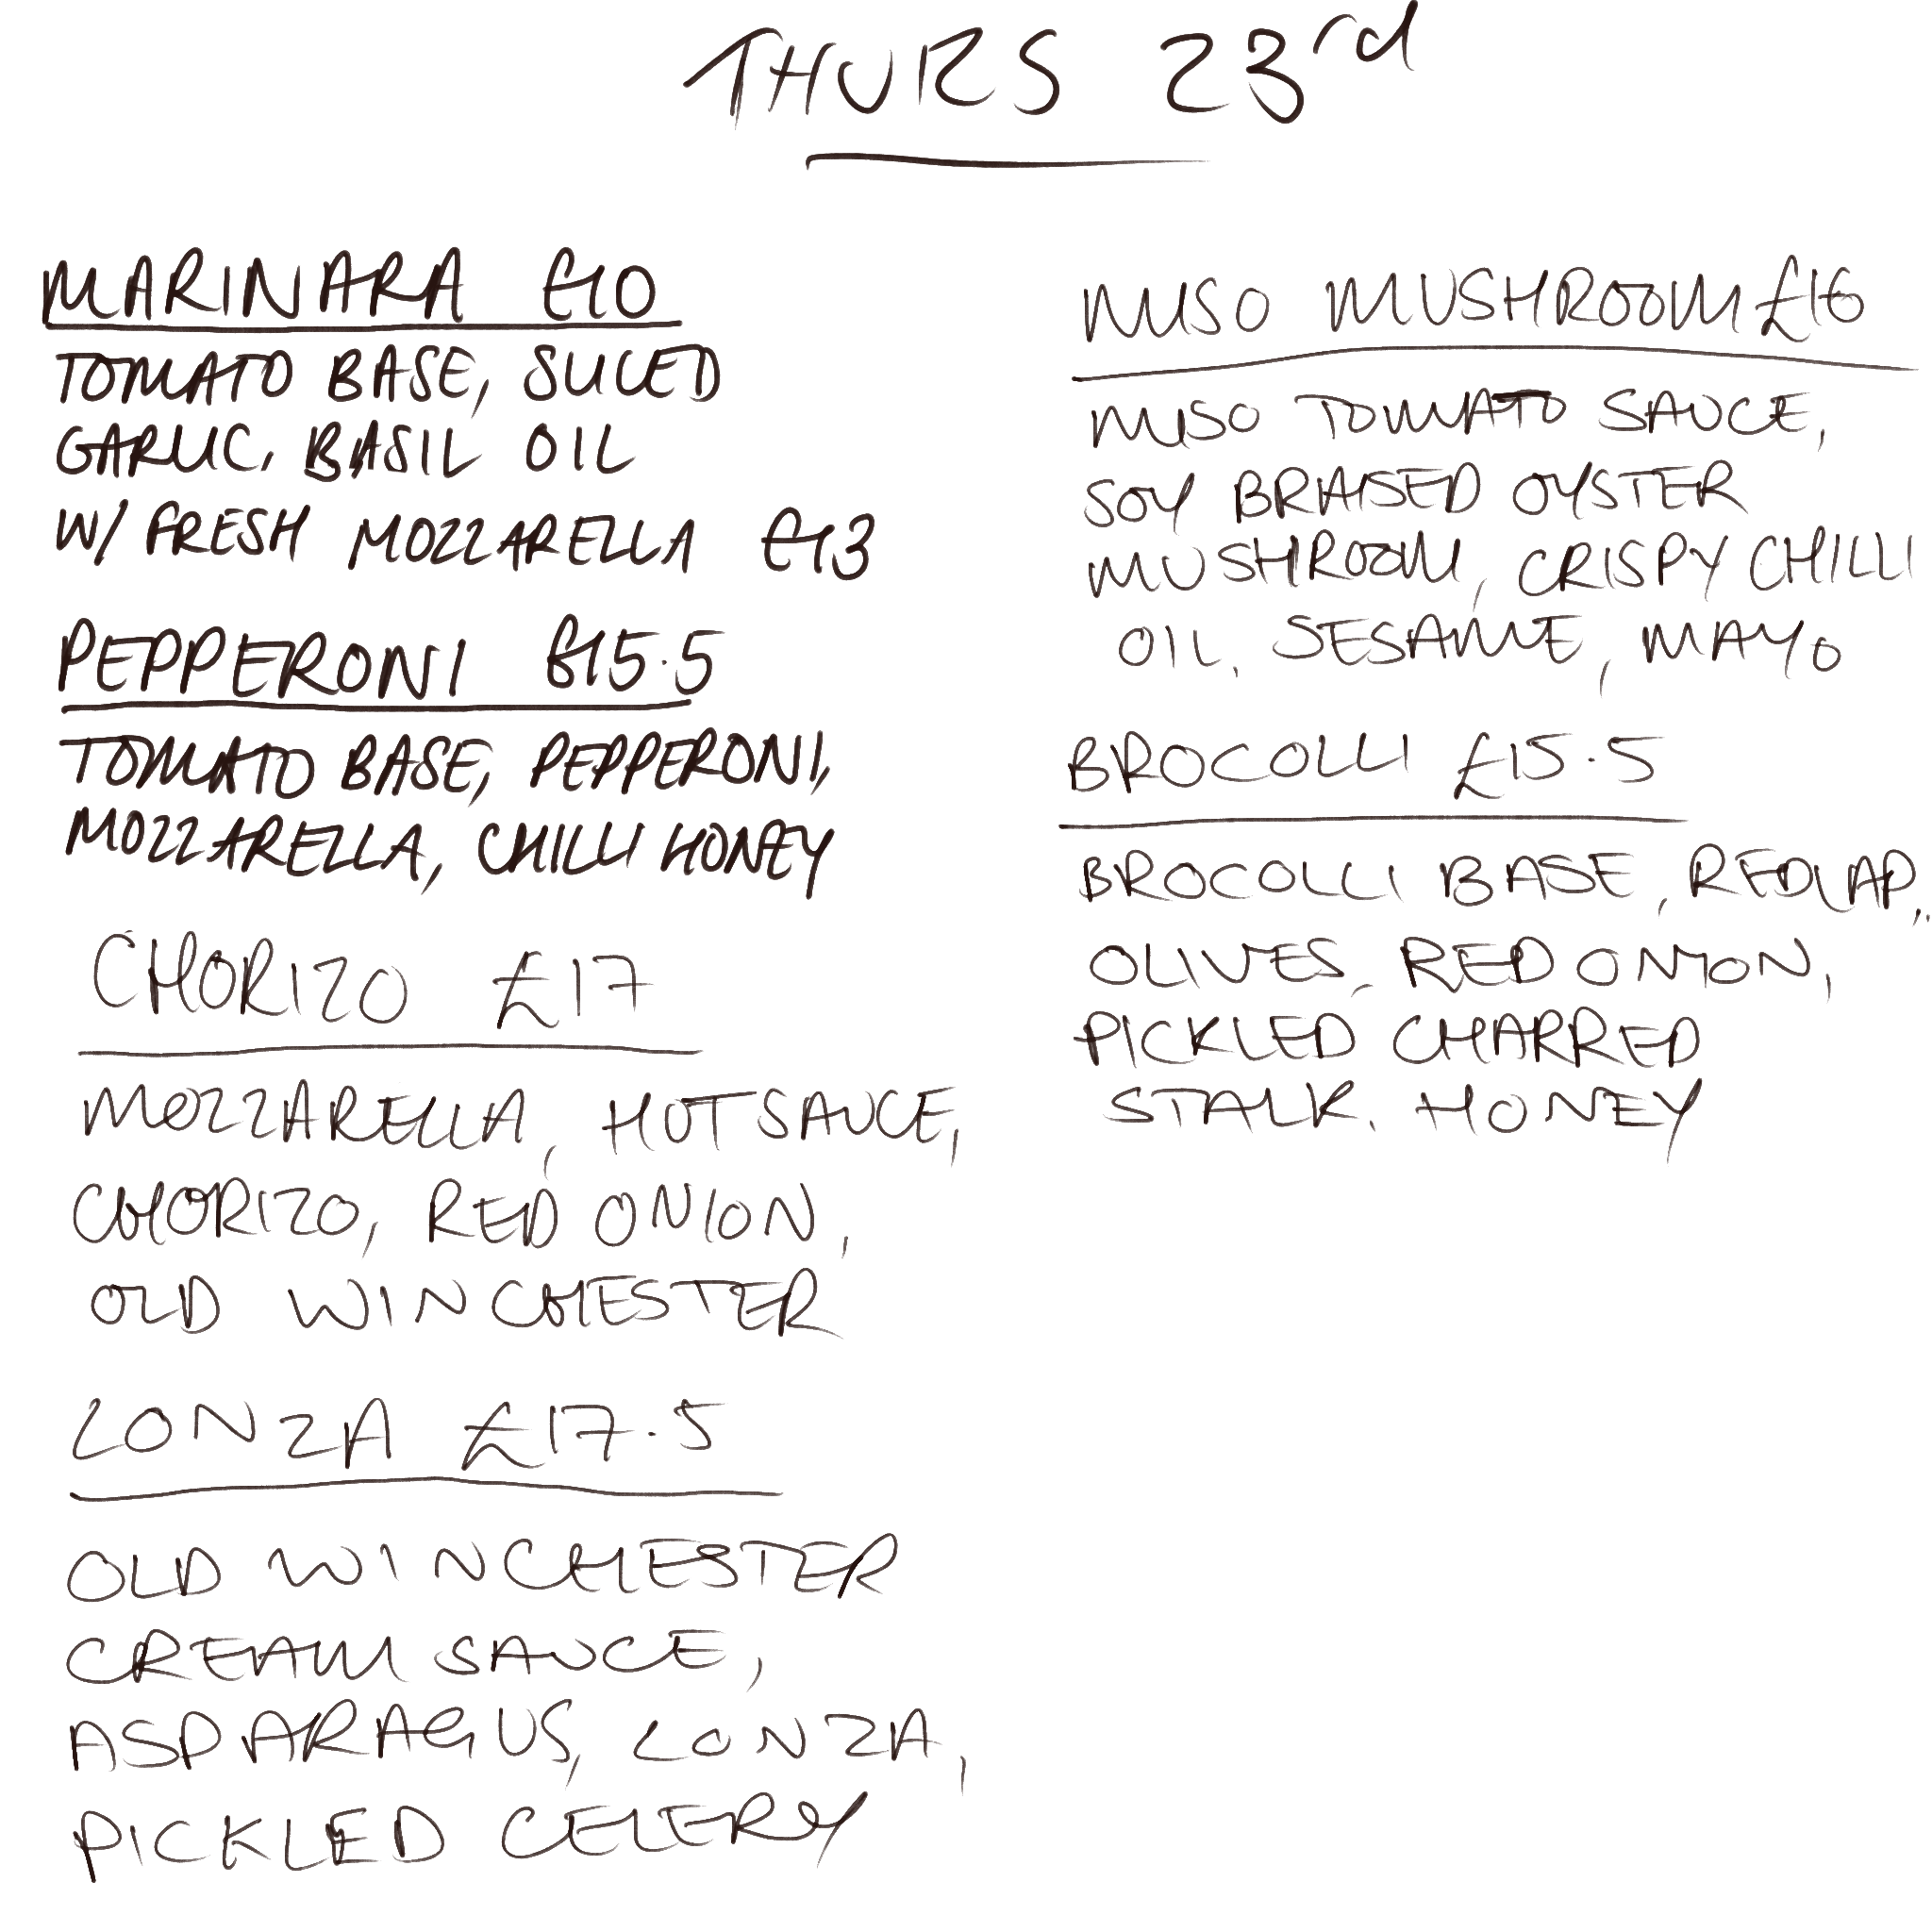 THURS 23rd
MARINARA £10
TOMATO BASE, SLICED
GARLIC, BASIL OIL
W/ FRESH MOZZARELLA £13
PEPPERONI £15.5
TOMATO BASE, PEPPERONI,
MOZZARELLA, CHILLI HONEY
CHORIZO £17
MOZZARELLA, HOT SAUCE,
CHORIZO, RED ONION,
OLD WINCHESTER
LONZA £17.5
OLD WINCHESTER
CREAM SAUCE,
ASPARAGUS, LONZA,
PICKLED CELERY
MISO MUSHROOM £16
MISO TOMATO SAUCE,
SOY BRAISED OYSTER
MUSHROOM, CRISPY CHILLI
OIL, SESAME, MAYO
BROCOLLI £15.5
BROCOLLI BASE, REDLAP,
OLIVES, RED ONION,
PICKLED CHARRED
STALK, HONEY